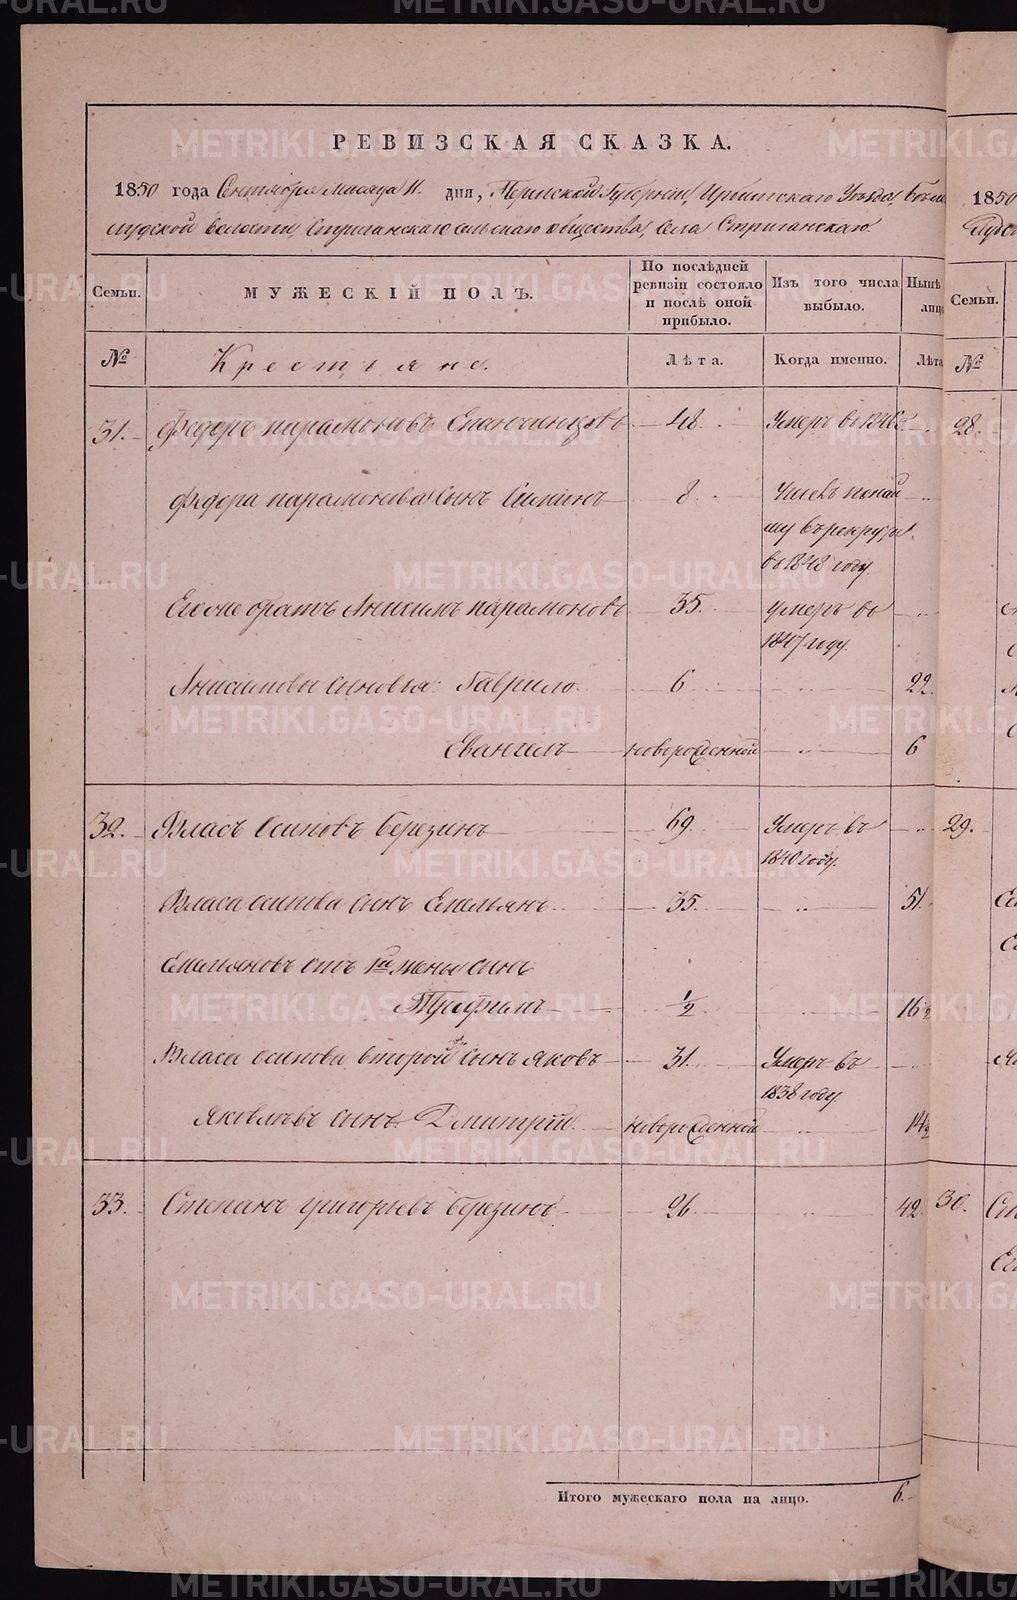 РЕВИЗСКАЯ СКАЗКА.
1850 года Сентября Месяца 11. дня, Пермской Губернии, Ирбитского Уезда, Бѣло
слудской волости, Стриганскаго сельскаго общества, Села Стриганскаго.
Семьи. МУЖЕСКІЙ ПОЛЪ. По послѣдней ревизіи состояло и послѣ оной прибыло. Изъ того числа выбыло. Нынѣ лицо
№ Крестьяне. Лѣта. Когда именно. Лѣта
31. Федоръ парамоновъ 48. Умеръ въ
Федора парамонова Сынъ 8
въ рекруты
въ 1848 году
Егоже братъ Анисимъ парамоновъ 35. умеръ въ
1847 году.
Анисимовы сыновья: Гаврило 6 22
Евангилъ новорожденной 6
32. Власъ Осиповъ Березинъ 69. Умеръ въ
1840 году.
Власа осипова сынъ Емельянъ 35. 51.
Емельяновъ отъ 1ой жены сынъ
Трифилъ 1/2 16 1/2
Власа осипова второй сынъ яковъ 31. Умеръ въ
1838 году
Яковлевъ сынъ Дмитрій новорожденной
33. Степанъ григорьевъ березинъ 26. 42
Итого мужескаго пола на лицо. 6.
1850
Семьи.
№
28.
29.
30.
METRIKI.GASO-URAL.RU